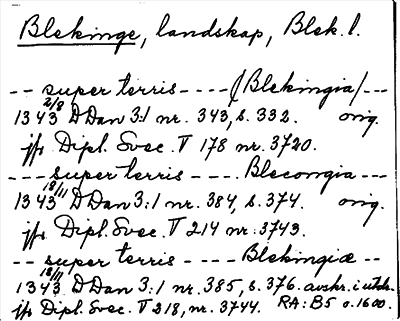 Blekinge, landskap, Blek. l.
-- super terris ---- (Blekingia) ---
1343 2/8 DDan 3:1 nr. 343, s. 332. orig.
jfr Dipl. Svec. V 178 nr. 3720.
--- super terris ---- Blecongia ---
1343 18/11 DDan 3:1 nr. 384, s. 374. orig.
jfr Dipl. Svec. V 214 nr. 3743.
-- super terris ---- Blekingiæ --
1343 18/11 DDan 3:1 nr. 385, s. 376. avskr. i utdr.
jfr Dipl. Svec. V 218, nr. 3744. RA: B5 c. 1600.